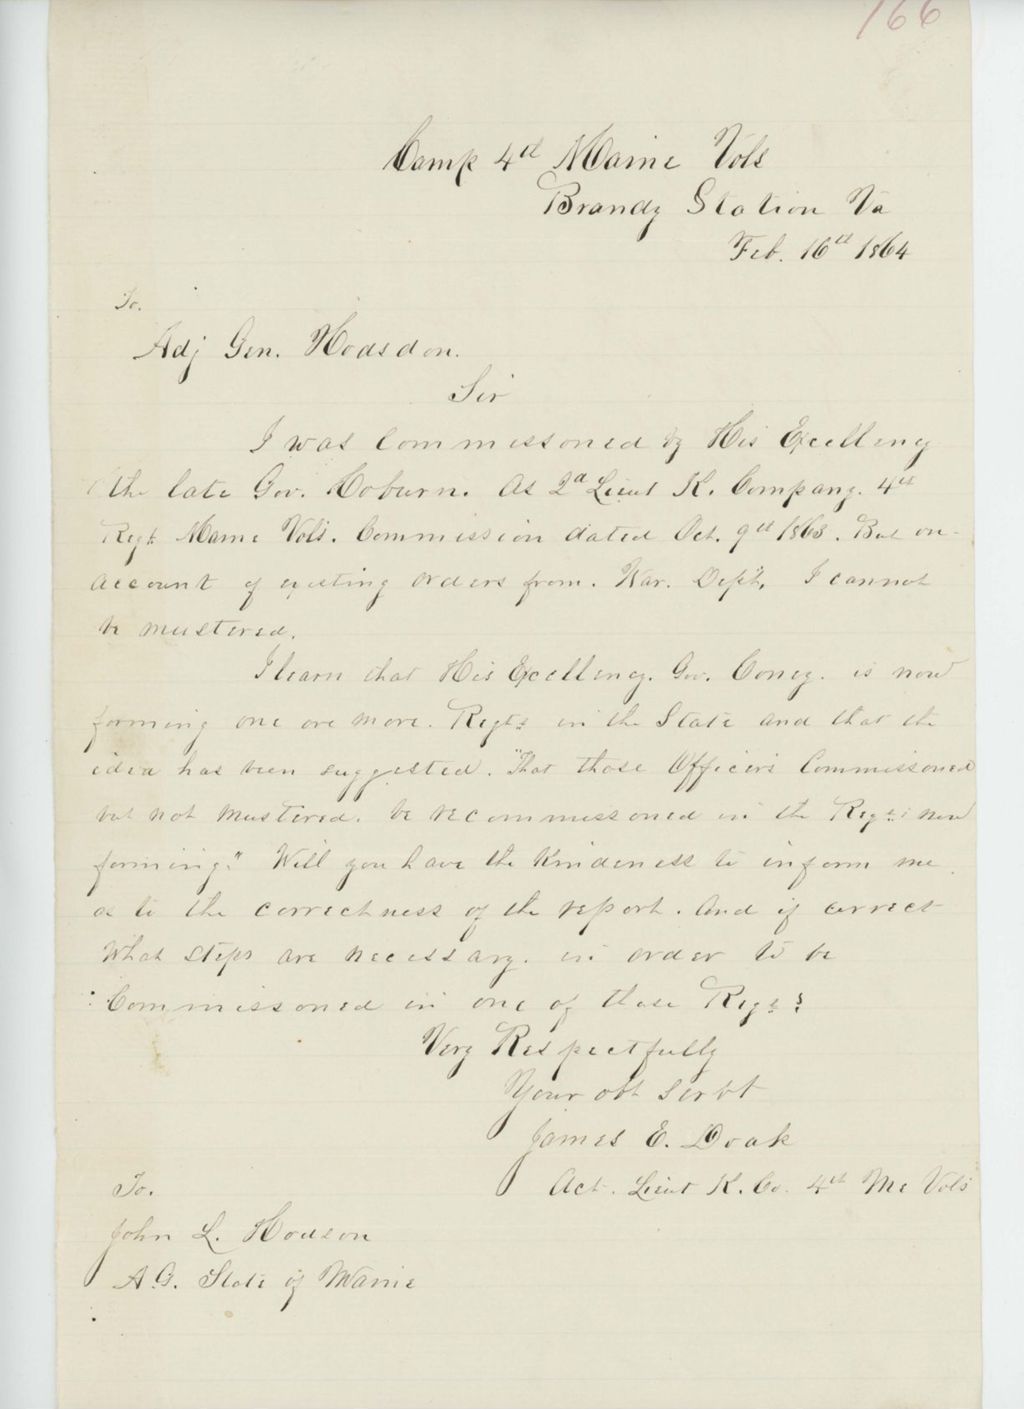 166
Camp 4th Maine Vols
Brandy Station Va
Feb. 16th 1864
To.
Adj Gen. Hodsdon.
Sir
I was Commissoned by His Excelleny
the late Gov. Coburn. As 2d Lieut K. Company. 4th
Regt Maine Vols. Commission dated Oct. 9th 1863. But on
account of existing orders from. War. Dept, I cannot
be mustered.
I learn that His Excelleny. Gov. Coney. is now
forming one ore more. Regts in the State and that the
idea has been suggested. "That those Officers Commissoned
but not mustered. be recommissoned in the Regts now
forming." Will you have the Kindeness to inform me
as to the correctness of the report. And if correct
What steps are necessary. in order to be
Commissoned in one of those Regts
Very Respectfully
Your obt servt
James E. Doak
Act. Lieut K. Co. 4th Me Vols
To.
John L. Hodson
A.G. State of Maine